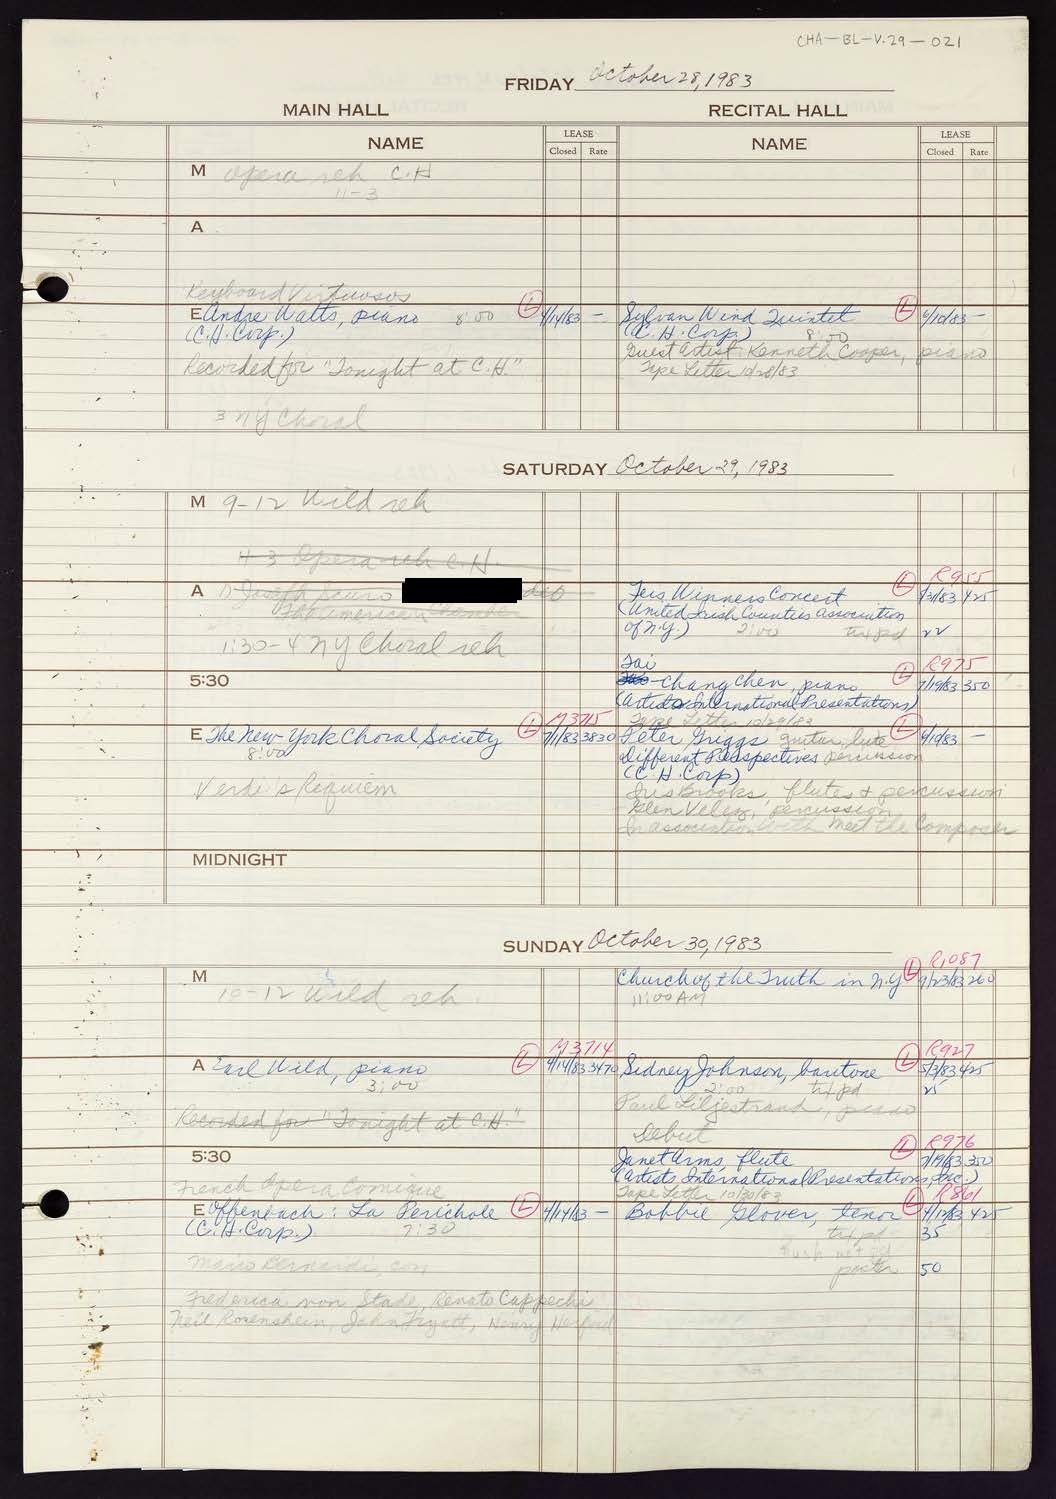 CHA-BL-V.29-021
FRIDAY October 28, 1983
MAIN HALL
RECITAL HALL
NAME
LEASE
Closed Rate
NAME
LEASE
Closed Rate
M Opera reh C.H
11-3
A
Keyboard Virtuosos
E Andre Watts, piano 8:00 L 4/14/83 -
(C.H.Corp.)
Recorded for "Tonight at C.H."
3 NY Choral
Sylvan Wind Quintet L 6/10/83 -
(C.H.Corp) 8:00
Guest Artist: Kenneth Cooper, piano
Tape Letter 10/28/83
SATURDAY October 29, 1983
M 9-12 Wild reh
11-3 Opera reh C.H.
A Joseph
The American
1:30-4 NY Choral reh
5:30
M3715
E The New York Choral Society L 7/1/83 3830
8:00
Verdi's Requiem
MIDNIGHT
R955
Feis Winners Concert L 5/31/83 425
(United Irish Counties Association
of N.Y.) 2:00 txt pd 22
Tai R975
Chang Chen, piano L 7/19/83 350
(Artists International Presentations)
Tape Letter 10/29/83
Peter Griggs guitar, lute L 6/10/83 -
Different Perspectives percussion
(C.H.Corp)
Iris Brooks, flutes & percussion
Glen Velez, percussion
In association with Meet the Composer
SUNDAY October 30, 1983
M
10-12 Wild reh
M3714
A Earl Wild, piano L 4/14/83 3470
3:00
Recorded for "Tonight at C.H."
5:30
French Opera Comique
E Offenbach: La Perichole L 4/14/83 -
(C.H.Corp.) 7:30
Mario Bernardi, con
Frederica von Stade, Renato Cappechi
Neil Rosenshein, John Fryatt, Henry Herford
R1087
Church of the Truth in N.Y L 9/23/83 260
11:00 AM
R927
Sidney Johnson, baritone L 5/3/83 425
2:00 txt pd 25
Paul Liljestrand, piano
Debut
R976
Janet Arms, flute L 7/19/83 350
(Artists International Presentations, Inc.)
Tape Letter 10/30/83
R861
Bobbie Glover, tenor L 4/12/83 425
txt pd 35
poster 50